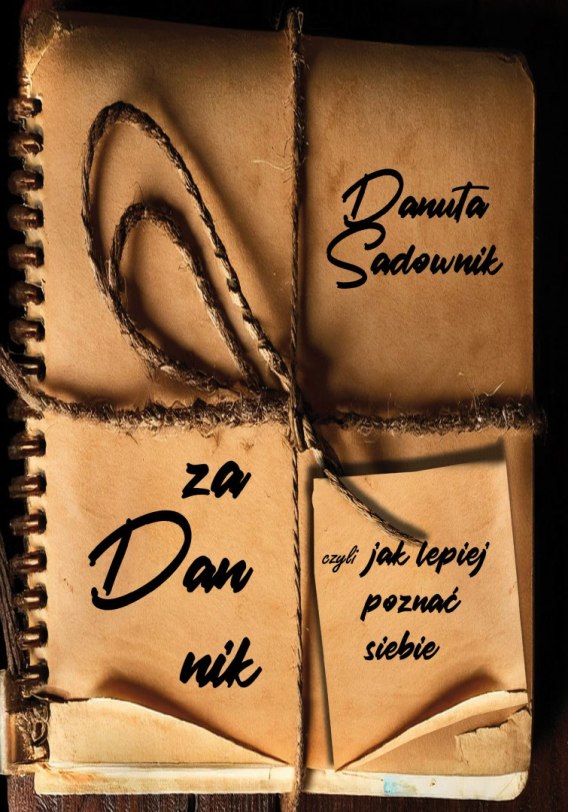 Danuta
Sadownik
za
Dan
nik
czyli jak lepiej
poznać
siebie